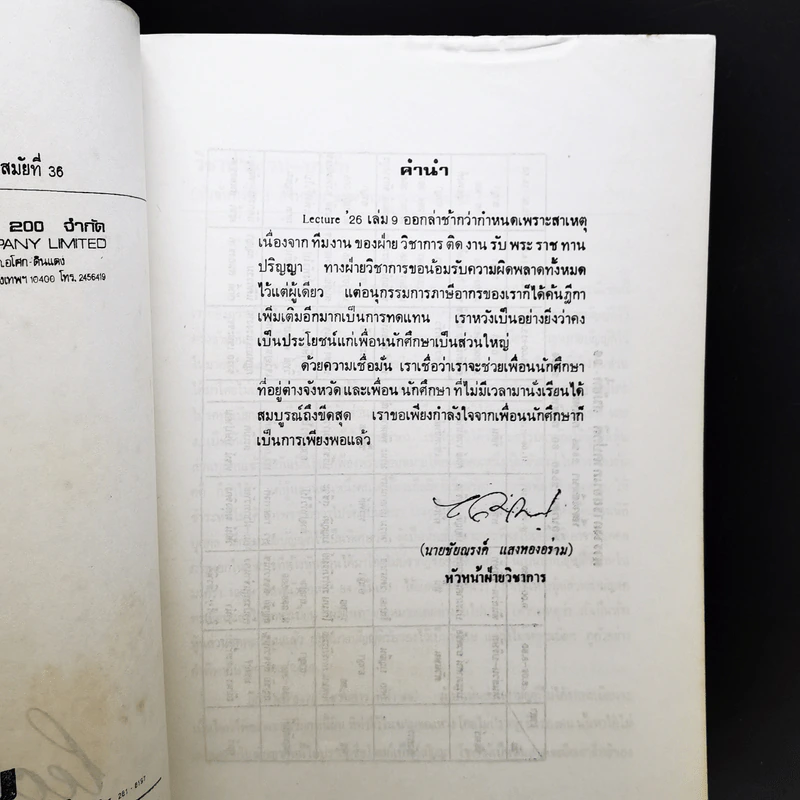 สมัยที่ 36
200 จำกัด
PANY LIMITED
อโศก-ดินแดง
10400 โทร. 2456419
คำนำ
Lecture '26 เล่ม 9 ออกล่าช้ากว่ากำหนดเพราะสาเหตุ
เนื่องจาก ทีมงาน ของฝ่าย วิชาการ ติด งาน รับ พระ ราช ทาน
ปริญญา ทางฝ่ายวิชาการขอน้อมรับความผิดพลาดทั้งหมด
ไว้แต่ผู้เดียว แต่อนุกรรมการภาษีอากรของเราก็ได้ค้นฎีกา
เพิ่มเติมอีกมากเป็นการทดแทน เราหวังเป็นอย่างยิ่งว่าคง
เป็นประโยชน์แก่เพื่อนนักศึกษาเป็นส่วนใหญ่
ด้วยความเชื่อมั่น เราเชื่อว่าเราจะช่วยเพื่อนนักศึกษา
ที่อยู่ต่างจังหวัด และเพื่อน นักศึกษา ที่ไม่มีเวลามานั่งเรียนได้
สมบูรณ์ถึงขีดสุด เราขอเพียงกำลังใจจากเพื่อนนักศึกษาก็
เป็นการเพียงพอแล้ว
(นายชัยณรงค์ แสงทองอร่าม)
หัวหน้าฝ่ายวิชาการ